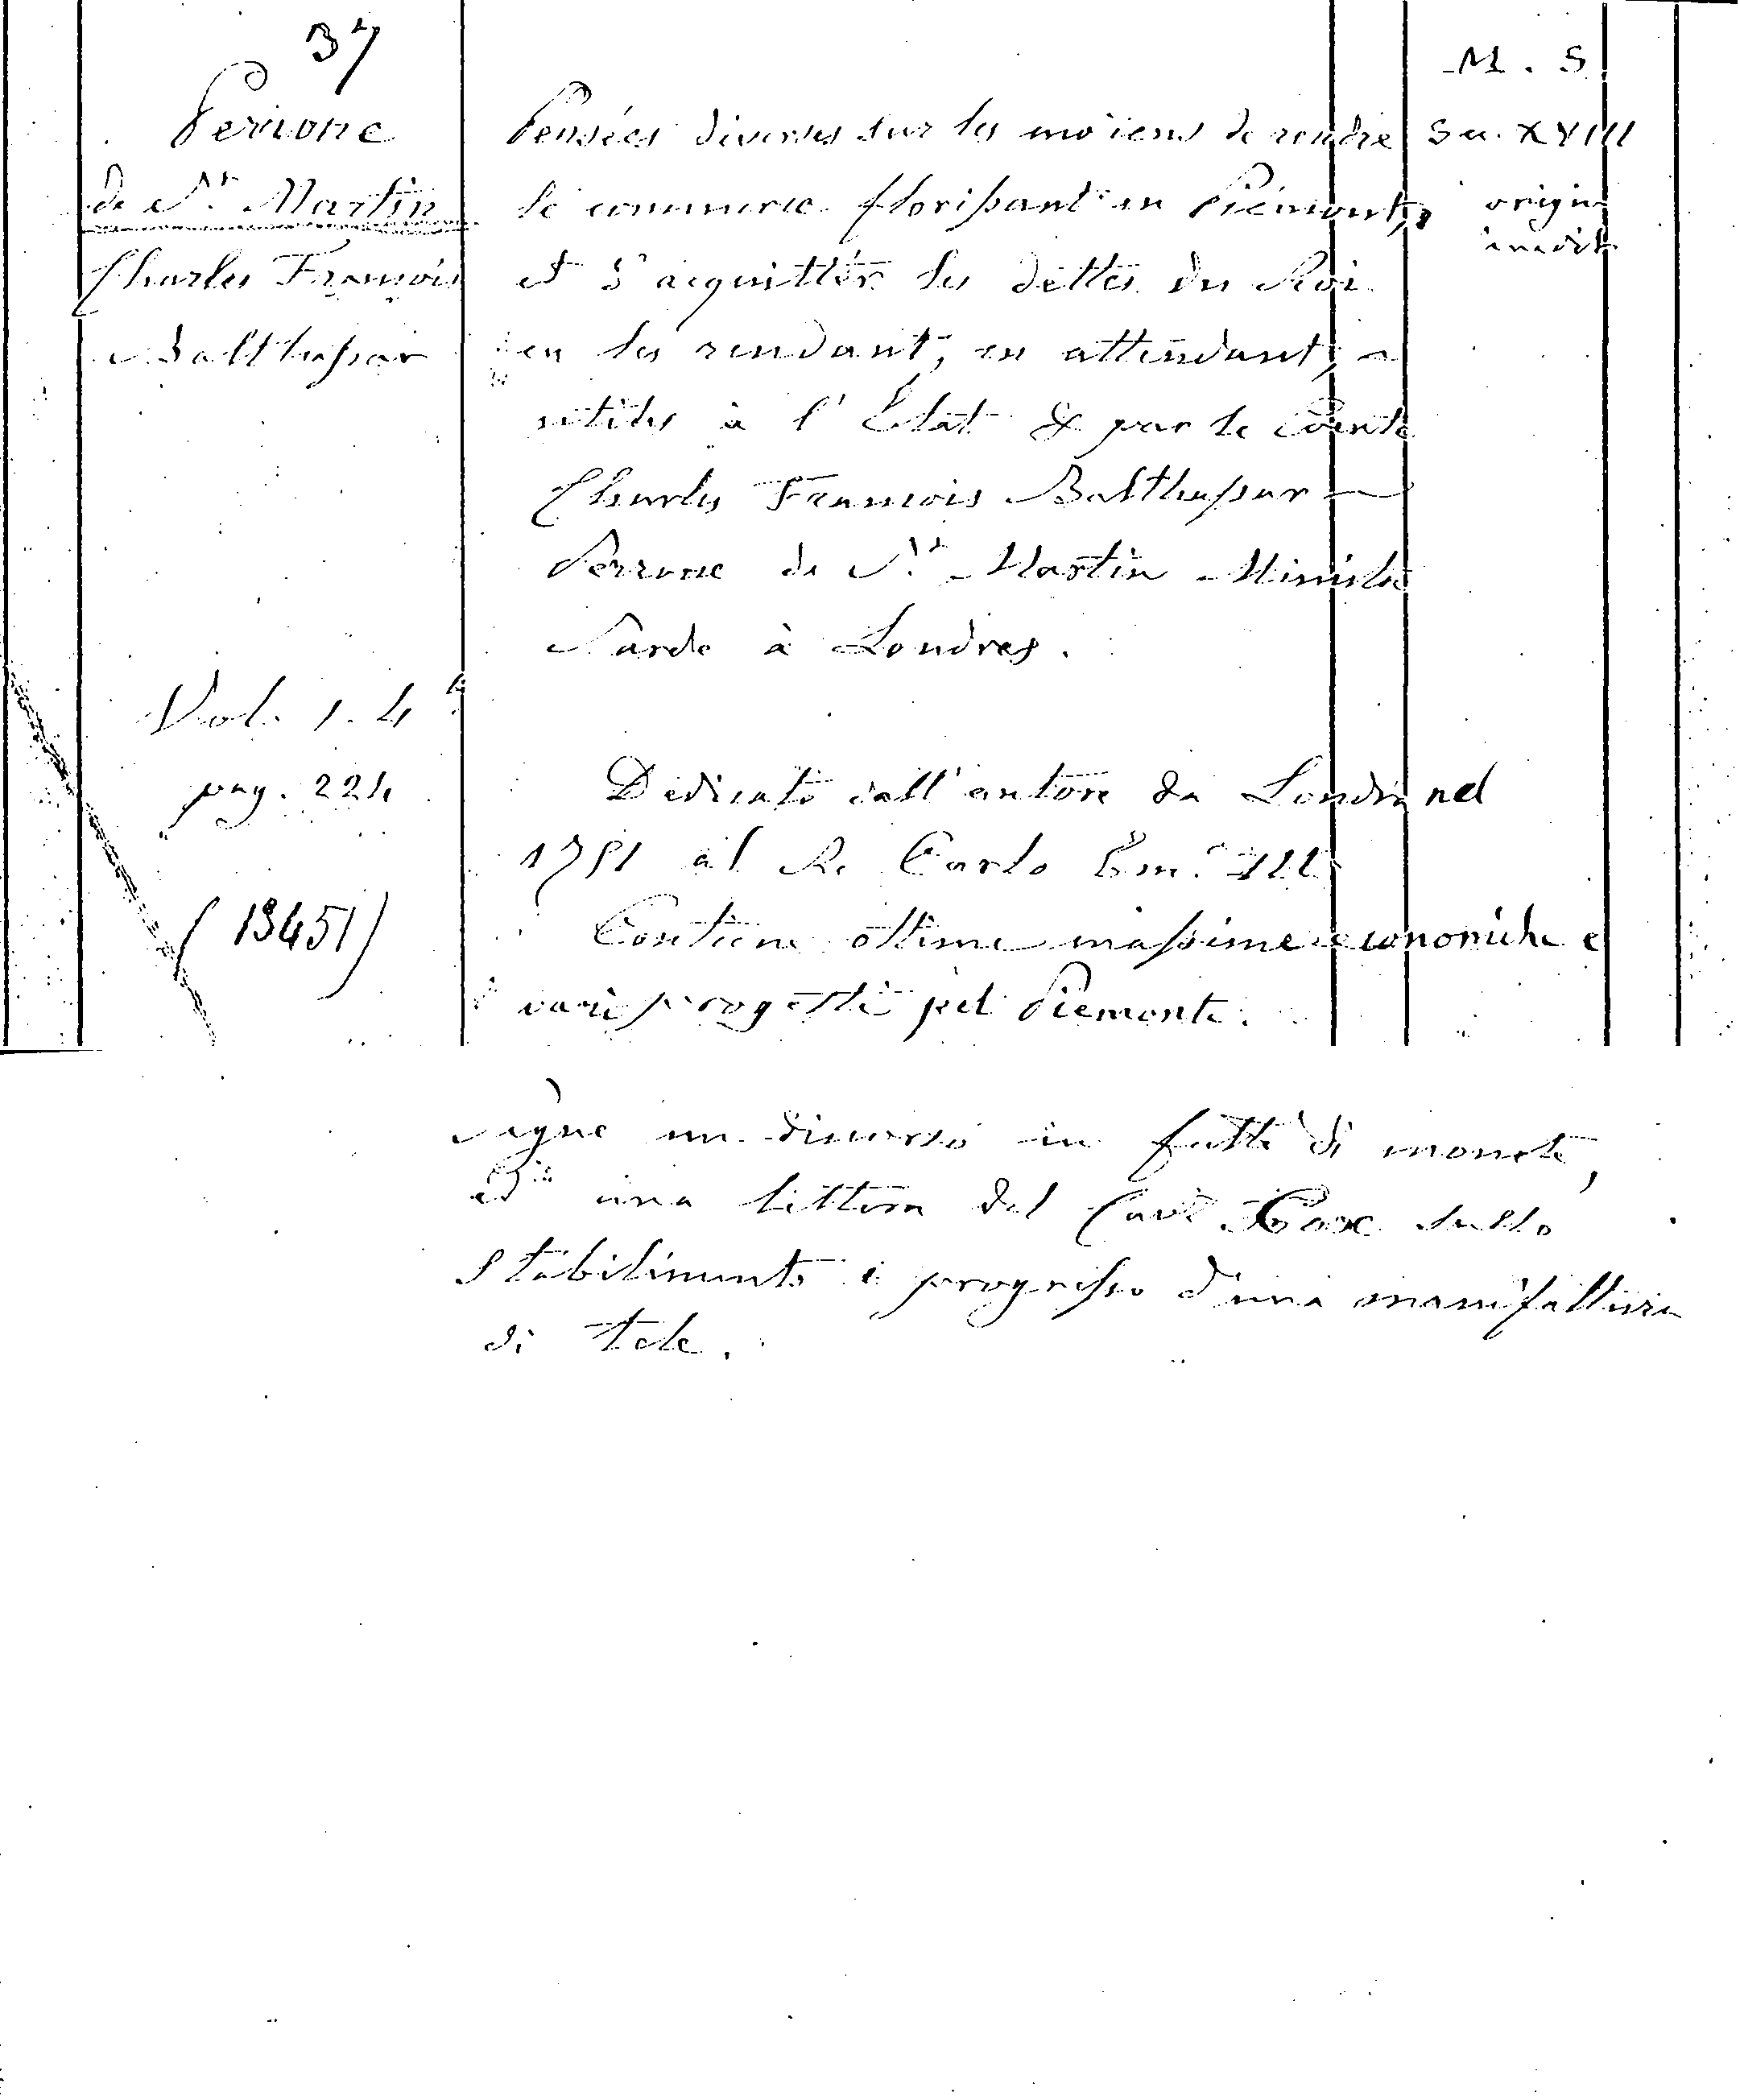 37
Perrone
de St. Martin
Charles François
Balthassar
Vol. 1. 4°
pag. 224
(13451)
Pensées diverses sur les moïens de rendre
le commerce florissant en Piémont,
et d'acquitter les dettes du Roi
en les rendant, en attendant,
utiles à l'Etat & par le Comte
Charles François Balthassar
Perrone de St. Martin Ministre
Sarde à Londres.
Dedicato dall'autore da Londra nel
1751 al Re Carlo Em.e III
Contiene ottime massime economiche e
varii progetti pel Piemonte.
Segue un discorso in fatto di monete,
ed una lettera del Cav.e Cox sullo
stabilimento e progresso d'una manifattura
di tele.
M. S.
Sec. XVIII
origin
inedit